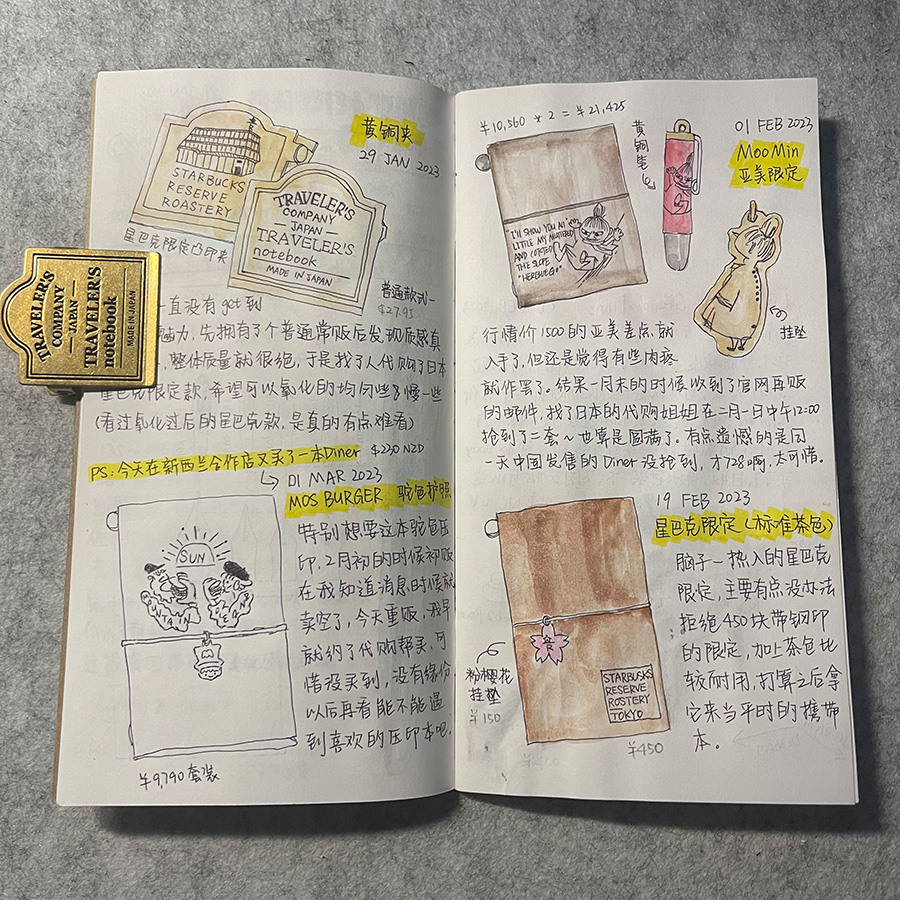 黄铜夹
29 JAN 2023
STARBUCKS
RESERVE
ROASTERY
TRAVELER'S
COMPANY
JAPAN
TRAVELER'S
notebook
MADE IN JAPAN
星巴克限定凸印夹
普通款式
$27.95
TRAVELER'S
COMPANY
JAPAN
TRAVELER'S
notebook
MADE IN JAPAN
一直没有get到
魅力,先拥有了个普通常贩后发现质感真
整体质量就很绝,于是找了人代购了日本
星巴克限定款,希望可以氧化的均匀些&慢一些
(看过氧化过后的星巴克款,是真的有点难看)
PS:今天在新西兰合作店又买了一本Diner $230 NZD
01 MAR 2023
MOS BURGER 驼色护照
SUN
特别想要这本驼色压
印,2月初的时候初贩
在我知道消息时候就
卖空了,今天重贩,我早
就约了代购帮买,可
惜没买到,没有缘份,
以后再看能不能遇
到喜欢的压印本吧。
¥9,790 套装
¥10,560 * 2 = ¥21,425
黄铜笔
01 FEB 2023
MooMin
亚美限定
I'LL SHOW YOU ALL
LITTLE MY MUTTERED
AND
THE SLOPE
"HERE WE GO"
挂坠
行情价1500的亚美差点就
入手了,但还是觉得有些肉疼
就作罢了。结果一月末的时候收到了官网再贩
的邮件,找了日本的代购姐姐在二月一日中午12:00
抢到了二套~也算是圆满了。有点遗憾的是同
一天中国发售的Diner没抢到,才728啊,太可惜。
19 FEB 2023
星巴克限定(标准茶色)
脑子一热入的星巴克
限定,主要有点没办法
拒绝450块带钢印
的限定,加上茶色比
较耐用,打算之后拿
它来当平时的携带
本。
粉樱花
挂坠
¥150
STARBUSKS
RESERVE
ROSTERY
TOKYO
¥450